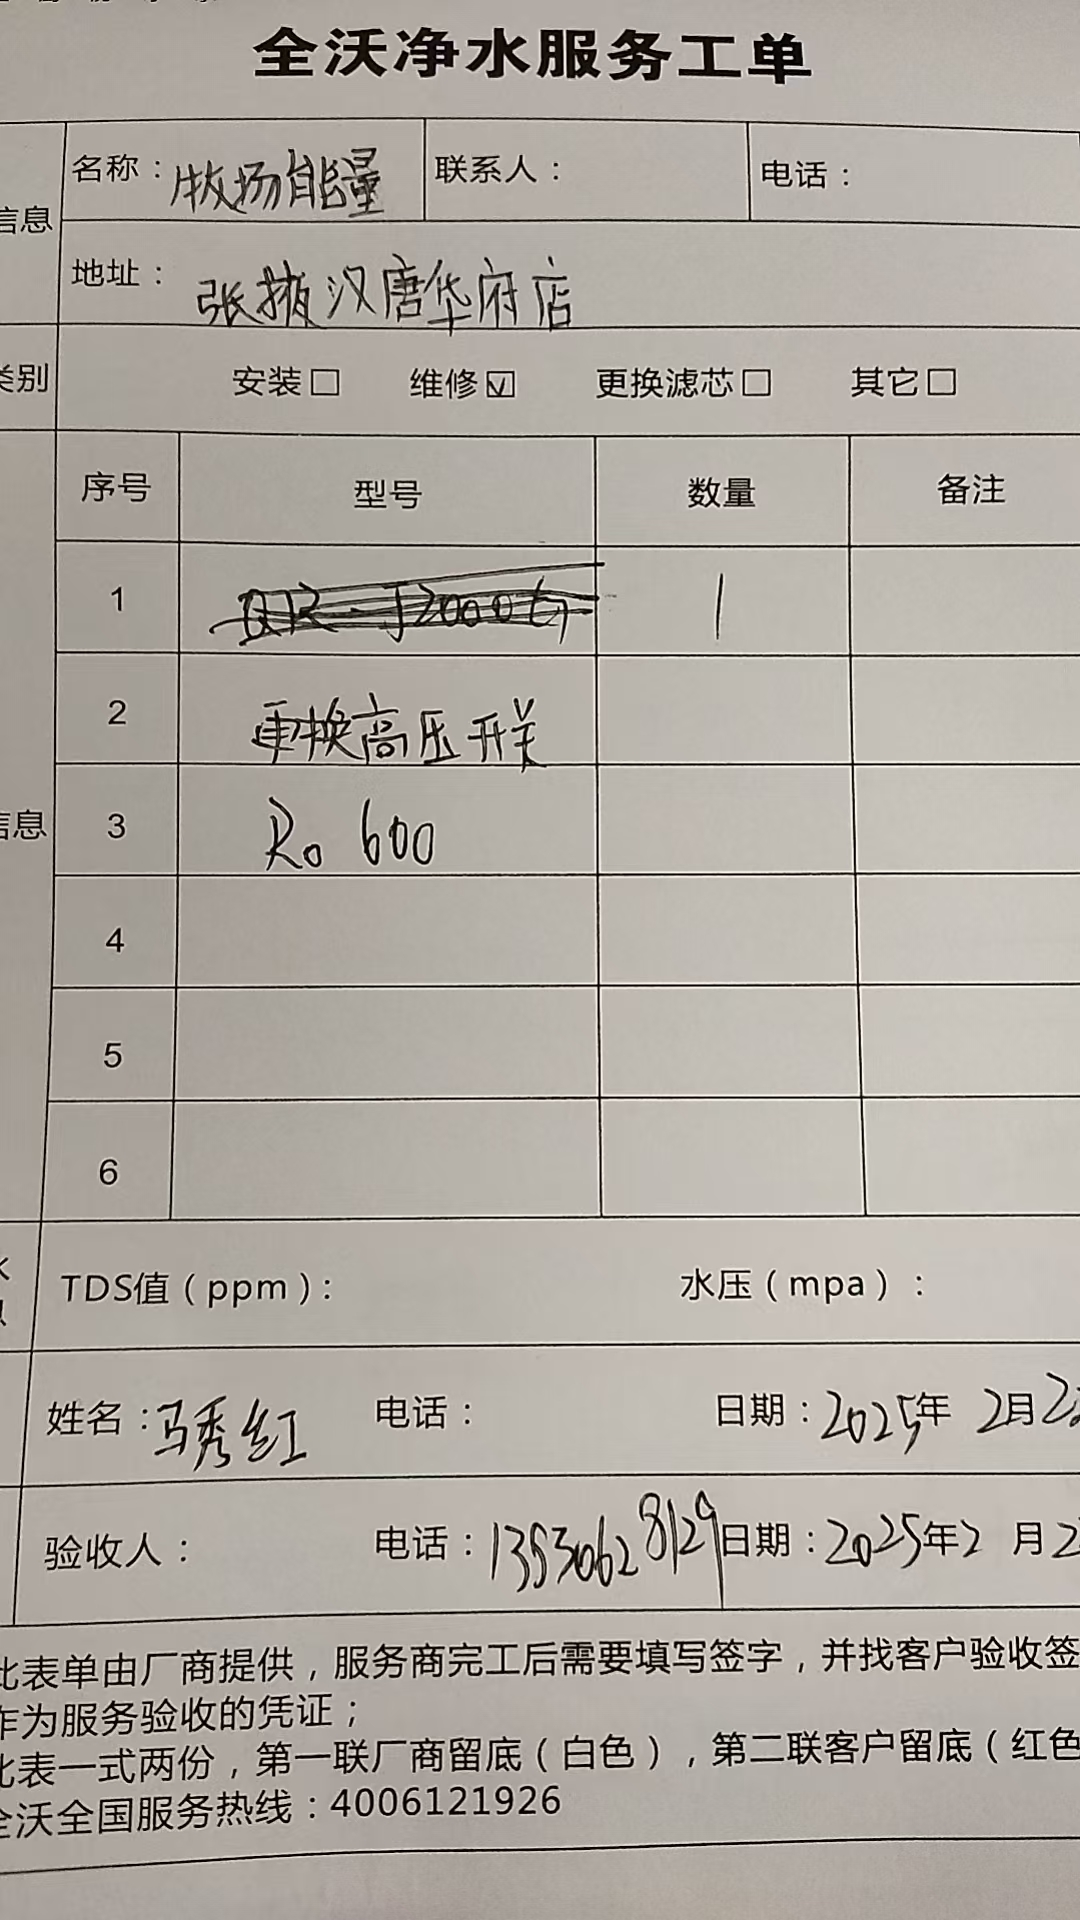 全沃净水服务工单
信息 名称：牧场能量 联系人： 电话：
地址：张掖汉唐华府店
类别 安装□ 维修☑ 更换滤芯□ 其它□
序号 型号 数量 备注
1 1
2 更换高压开关
信息 3 Ro 600
4
5
6
TDS值（ppm）： 水压（mpa）：
姓名：马秀红 电话： 日期：2025年 2月
验收人： 电话：13930628129 日期：2025年2 月
此表单由厂商提供，服务商完工后需要填写签字，并找客户验收签
作为服务验收的凭证；
此表一式两份，第一联厂商留底（白色），第二联客户留底（红色
全沃全国服务热线：4006121926